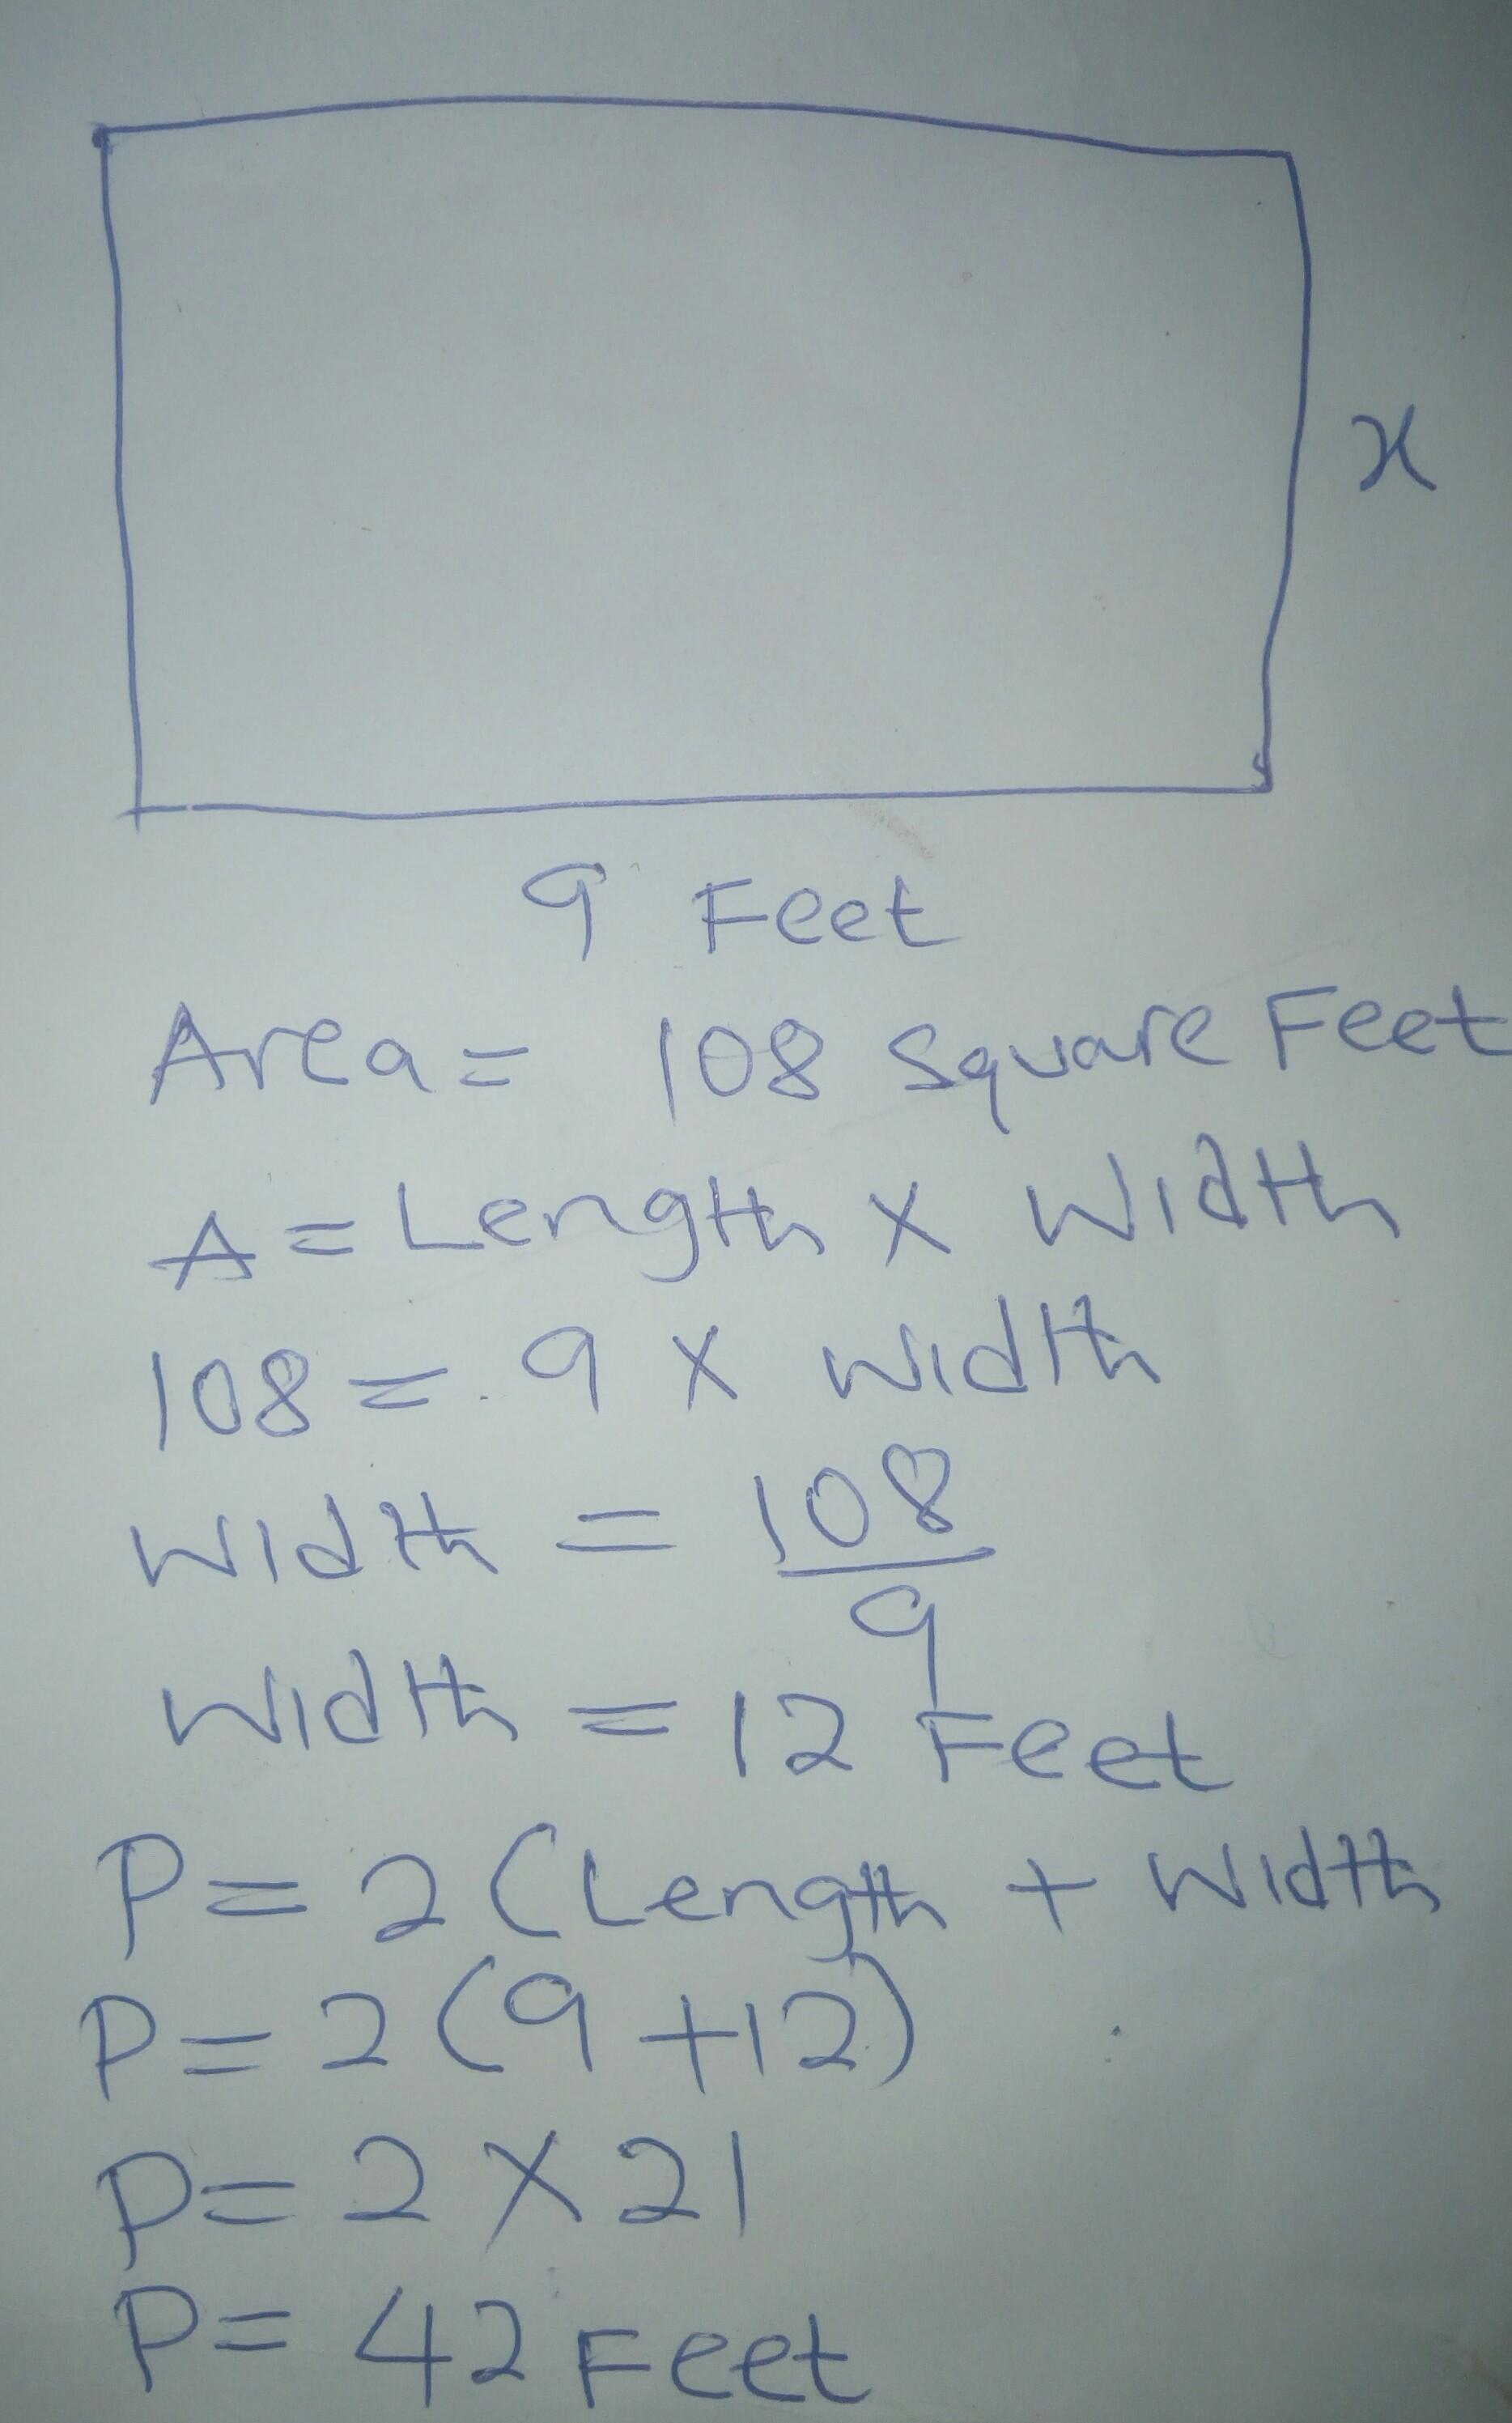 x
9 Feet
Area = 108 Square Feet
A = Length X Width
108 = 9 X Width
Width = 108/9
Width = 12 Feet
P = 2 (Length + Width
P = 2 (9 + 12)
P = 2 X 21
P = 42 Feet